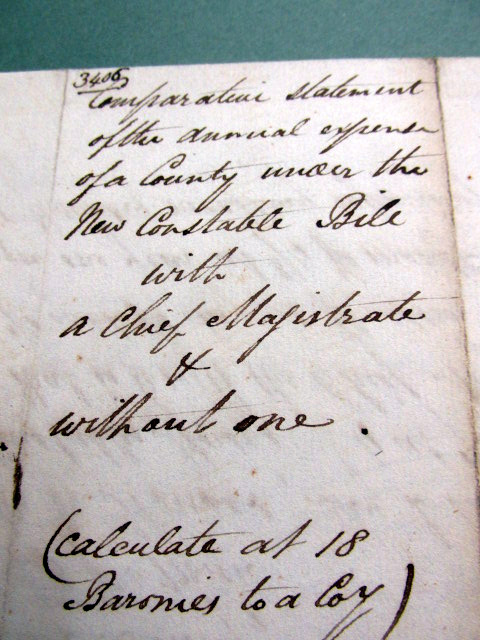 3406
Comparative statement
of the annual expense
of a County under the
New Constable Bill
with
a Chief Magistrate
&
without one.
(calculate at 18
Baronies to a Coy)